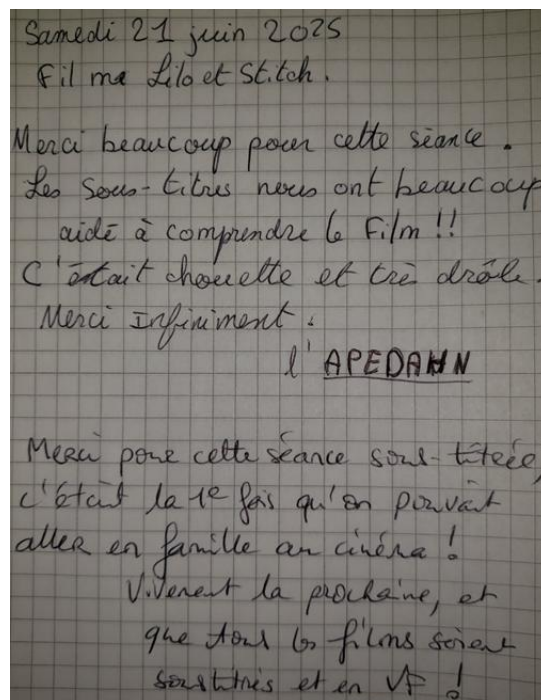 Samedi 21 juin 2025
Film Lilo et Stitch.
Merci beaucoup pour cette séance.
Les sous-titres nous ont beaucoup
aidé à comprendre le Film !!
C'était chouette et très drôle.
Merci Infiniment.
l'APEDAHN
Merci pour cette séance sous-titrée,
c'était la 1e fois qu'on pouvait
aller en famille au cinéma !
Vivement la prochaine, et
que tous les films soient
soustitrés et en VF !